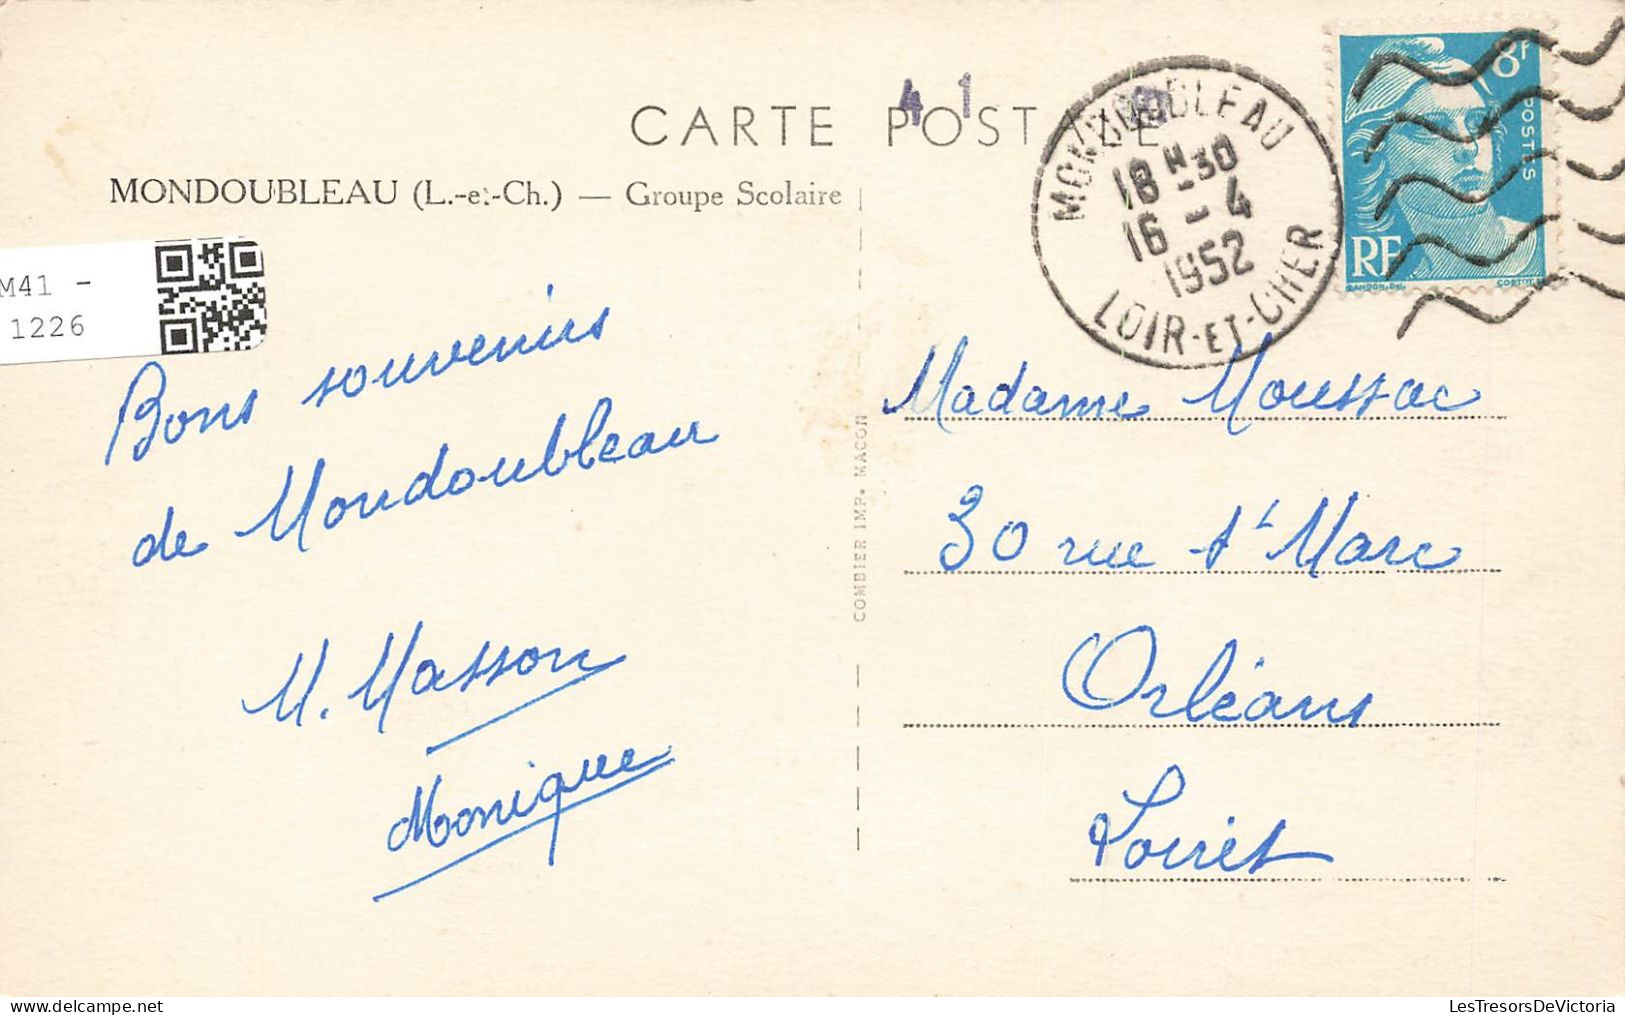 CARTE POSTALE
4 1
MONDOUBLEAU (L.-et-Ch.) — Groupe Scolaire
M41 -
1226
MONDOUBLEAU
18 H 30
16 - 4
1952
LOIR-ET-CHER
8F
POSTES
RF
GANDON. Del.
CORTOT.
Bons souvenirs
de Mondoubleau
M. Masson
Monique
COMBIER IMP. MACON
Madame Moussac
30 rue St Marc
Orléans
Loiret
LesTresorsDeVictoria